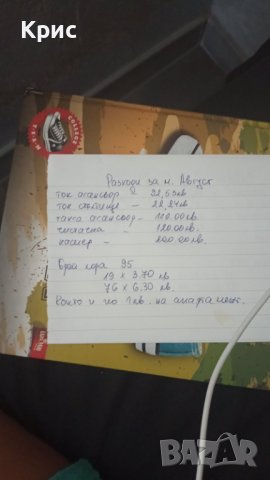 Крис
Разходи за м. Август
ток асансьор - 22,53лв
ток стълбище - 22,24лв
такса асансьор - 110.00лв.
чистачка - 120.00лв.
касиер - 100.00лв.
Брой хора 95
19 x 3.70 лв
76 x 6.30 лв.
Които и по 1лв. на апартамент.
BAZAR